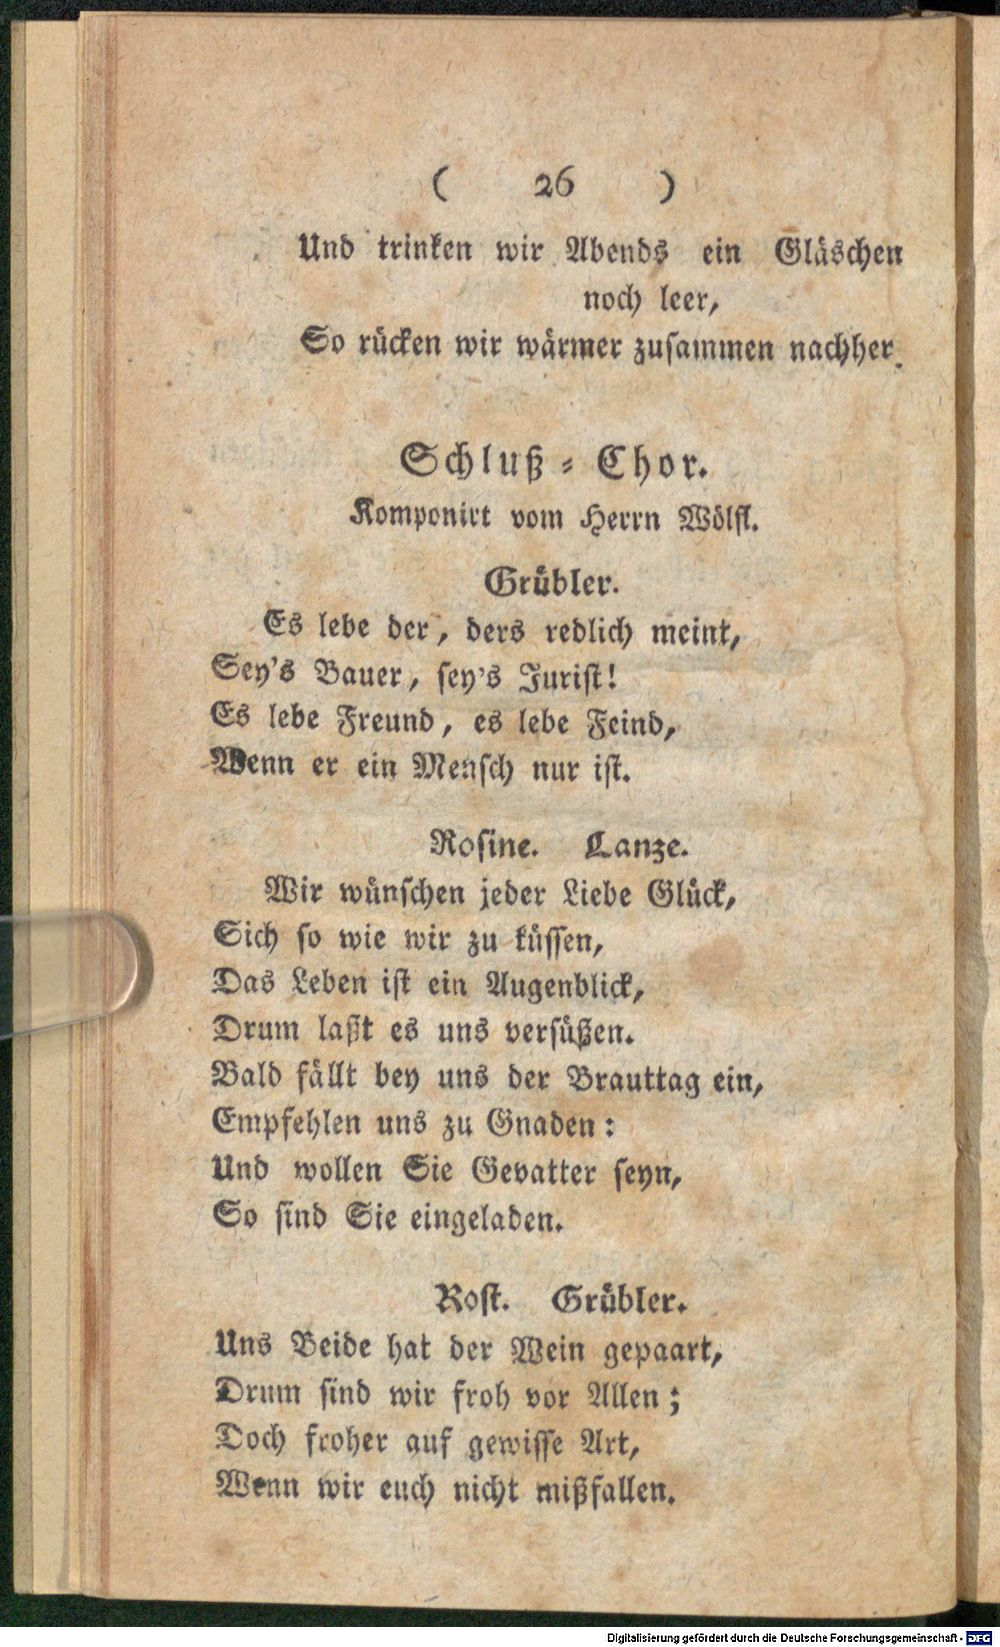 ( 26 )
Und trinken wir Abends ein Gläschen
noch leer,
So rücken wir wärmer zusammen nachher.
Schluß-Chor.
Komponirt vom Herrn Wölfl.
Grübler.
Es lebe der, ders redlich meint,
Sey's Bauer, sey's Jurist!
Es lebe Freund, es lebe Feind,
Wenn er ein Mensch nur ist.
Rosine. Lanze.
Wir wünschen jeder Liebe Glück,
Sich so wie wir zu küssen,
Das Leben ist ein Augenblick,
Drum laßt es uns versüßen.
Bald fällt bey uns der Brauttag ein,
Empfehlen uns zu Gnaden:
Und wollen Sie Gevatter seyn,
So sind Sie eingeladen.
Rost. Grübler.
Uns Beide hat der Wein gepaart,
Drum sind wir froh vor Allen;
Doch froher auf gewisse Art,
Wenn wir euch nicht mißfallen.
Digitalisierung gefördert durch die Deutsche Forschungsgemeinschaft - DFG